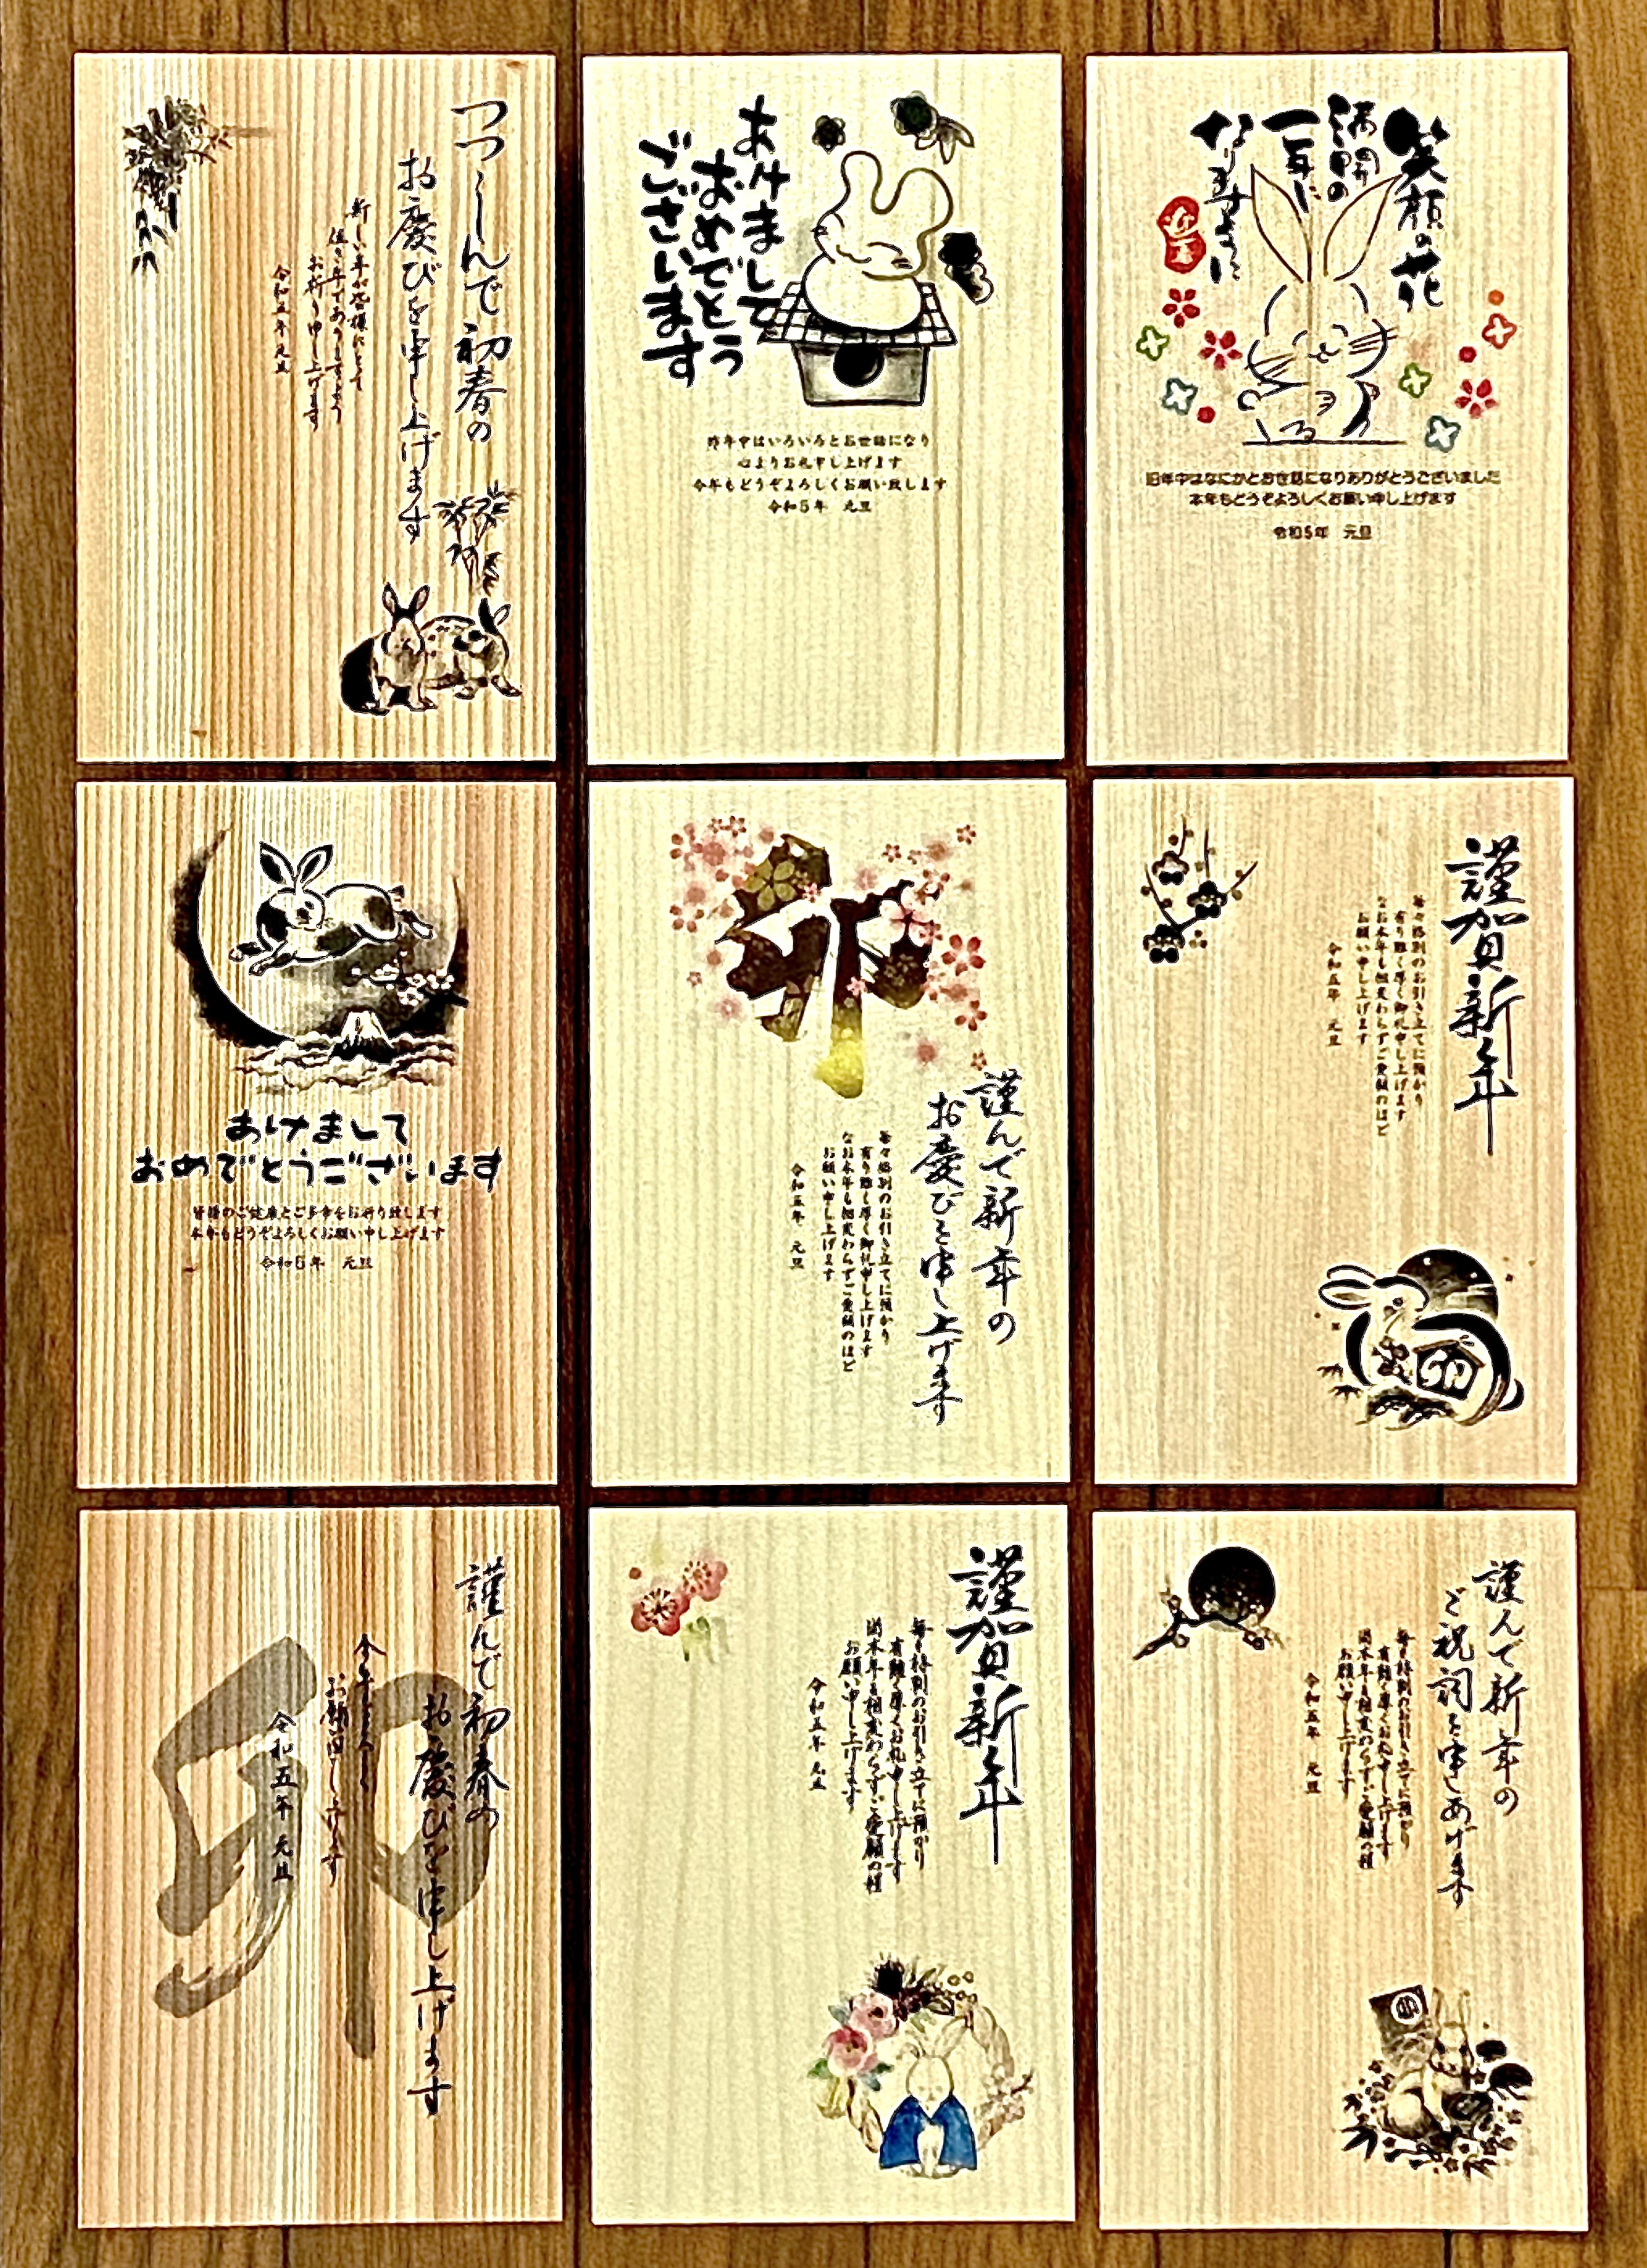 つつしんで初春の
お慶びを申し上げます
新しい年が皆様にとって
佳き年でありますよう
お祈り申し上げます
令和五年 元旦
あけまして
おめでとう
ございます
昨年中はいろいろとお世話になり
心よりお礼申し上げます
今年もどうぞよろしくお願い致します
令和5年 元旦
笑顔の花
満開の
一年に
なりますように
旧年中はなにかとお世話になりありがとうございました
本年もどうぞよろしくお願い申し上げます
令和5年 元旦
あけまして
おめでとうございます
皆様のご健康とご多幸をお祈り致します
本年もどうぞよろしくお願い申し上げます
令和5年 元旦
卯
謹んで新年の
お慶びを申し上げます
毎々格別のお引き立てに預かり
有り難く厚く御礼申し上げます
なお本年も相変わらずご愛顧のほど
お願い申し上げます
令和五年 元旦
謹賀新年
毎々格別のお引き立てに預かり
有り難く厚く御礼申し上げます
なお本年も相変わらずご愛顧のほど
お願い申し上げます
令和五年 元旦
卯
謹んで初春の
お慶びを申し上げます
今年もよろしく
お願い申し上げます
令和五年 元旦
謹賀新年
毎々格別のお引き立てに預かり
有難く厚くお礼申し上げます
尚本年も相変わらずご愛顧の程
お願い申し上げます
令和五年 元旦
謹んで新年の
ご祝詞を申しあげます
毎々格別のお引き立てに預かり
有難く厚くお礼申し上げます
尚本年も相変わらずご愛顧の程
お願い申し上げます
令和五年 元旦